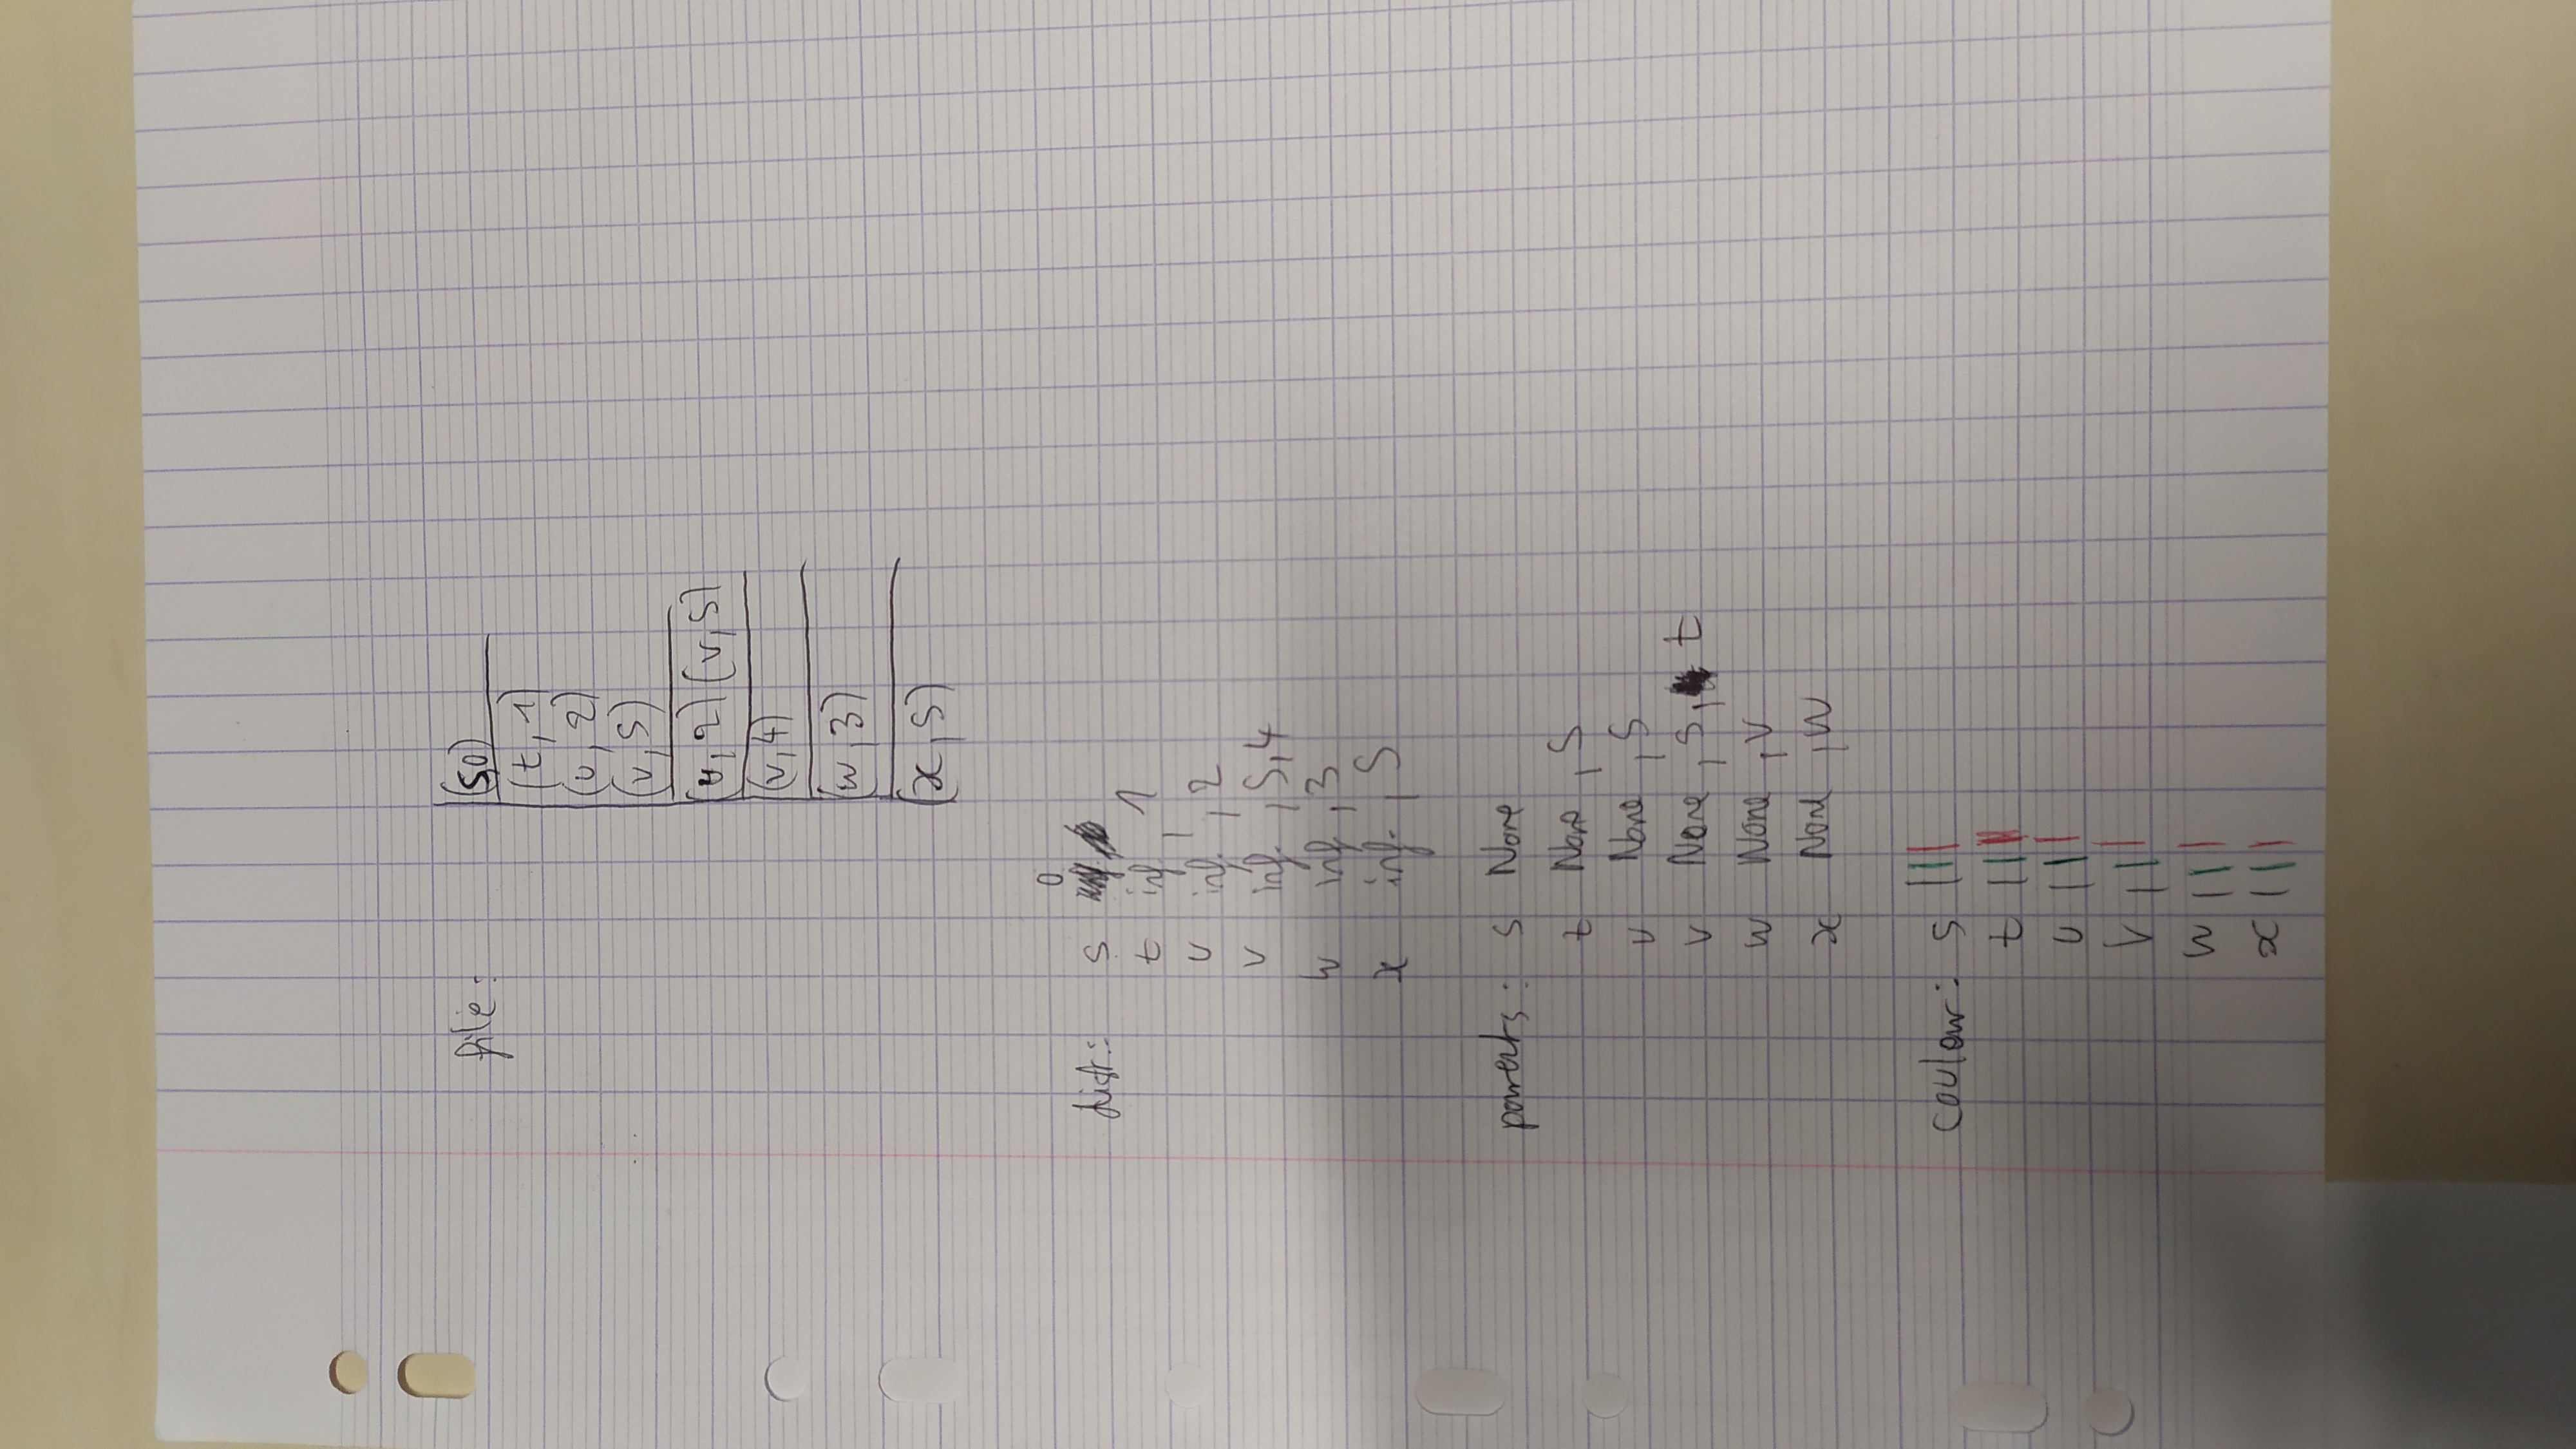 file: (s,0)
(t, 1)
(u, 2)
(v, 5)
(u, 2) (v, 5)
(v, 4)
(w, 3)
(x, 5)
0
dist: s
t inf, 1
u inf, 2
v inf, 5, 4
w inf, 3
x inf, 5
parents: s None
t None, s
u None, s
v None, s, t
w None, v
x None, w
couleur: s
t
u
v
w
x